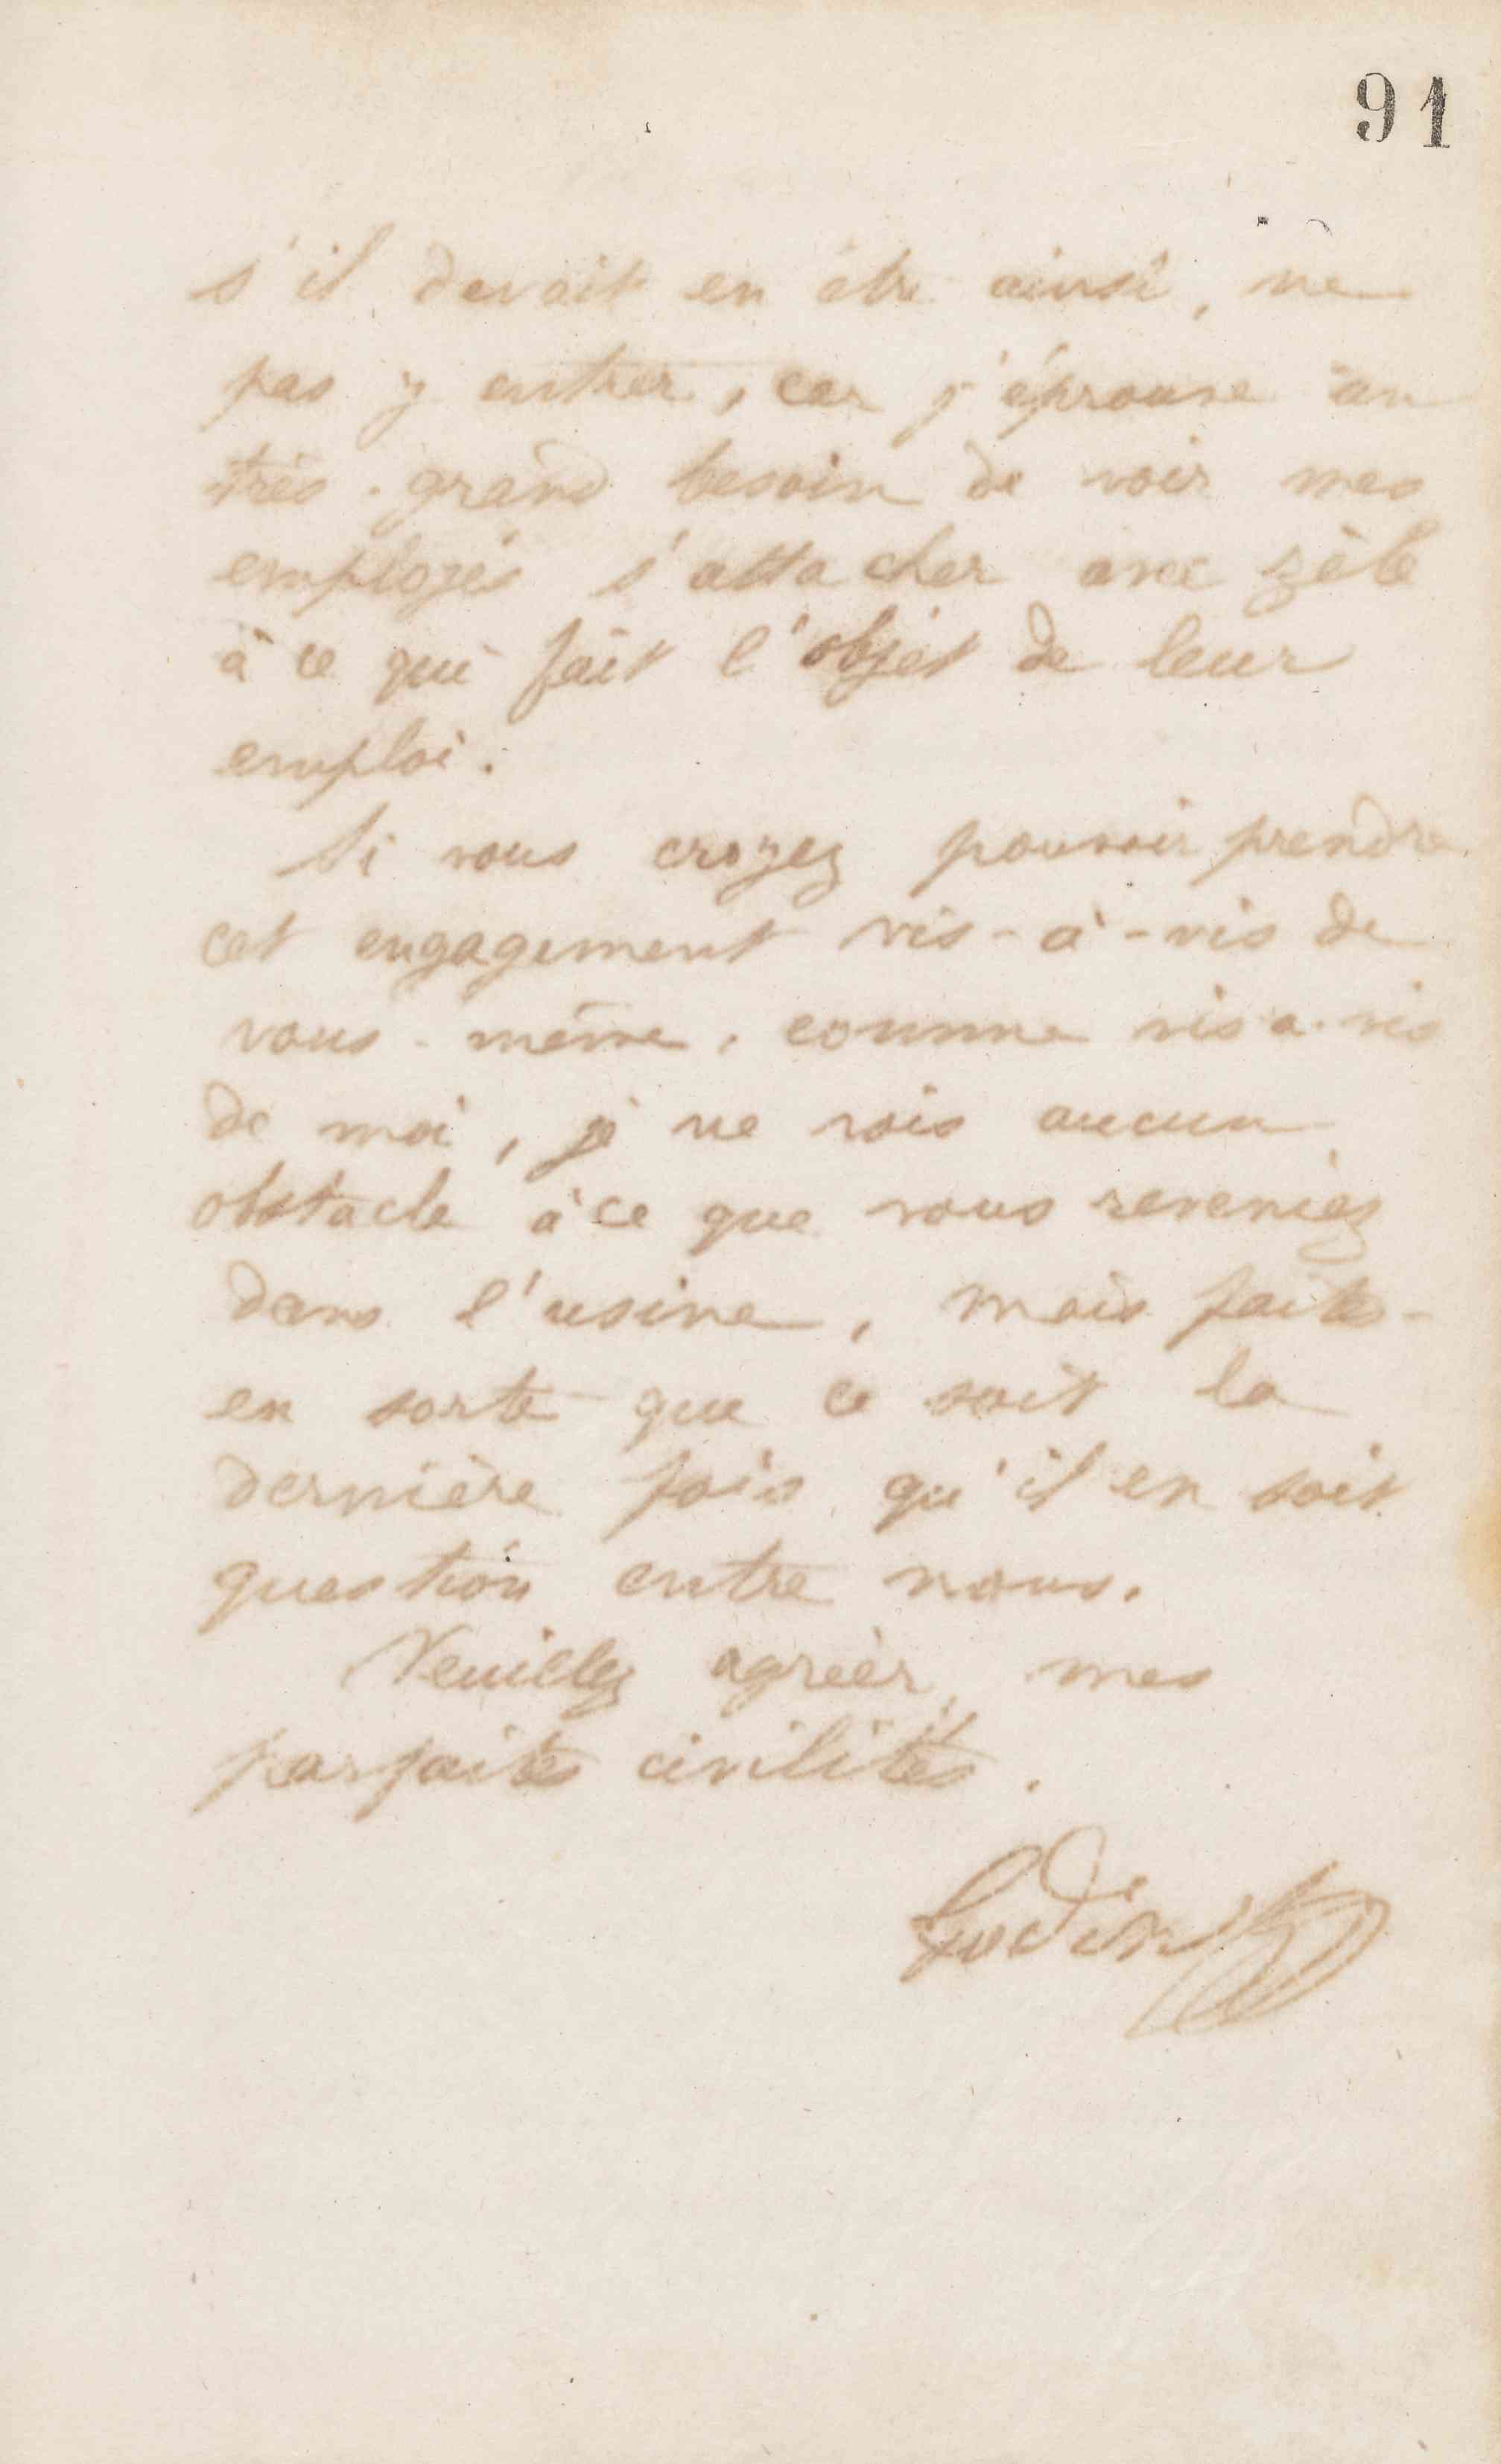 91
s'il devait en être ainsi, ne
pas y entrer, car j'éprouve un
très-grand besoin de voir mes
employés s'attacher avec zèle
à ce qui fait l'objet de leur
emploi.
Si vous croyez pouvoir prendre
cet engagement vis-à-vis de
vous-même, comme vis à vis
de moi, je ne vois aucun
obstacle à ce que vous reveniez
dans l'usine, mais faites-
en sorte que ce soit la
dernière fois qu'il en soit
question entre nous.
Veuillez agréer, mes
parfaites civilités.
Godin